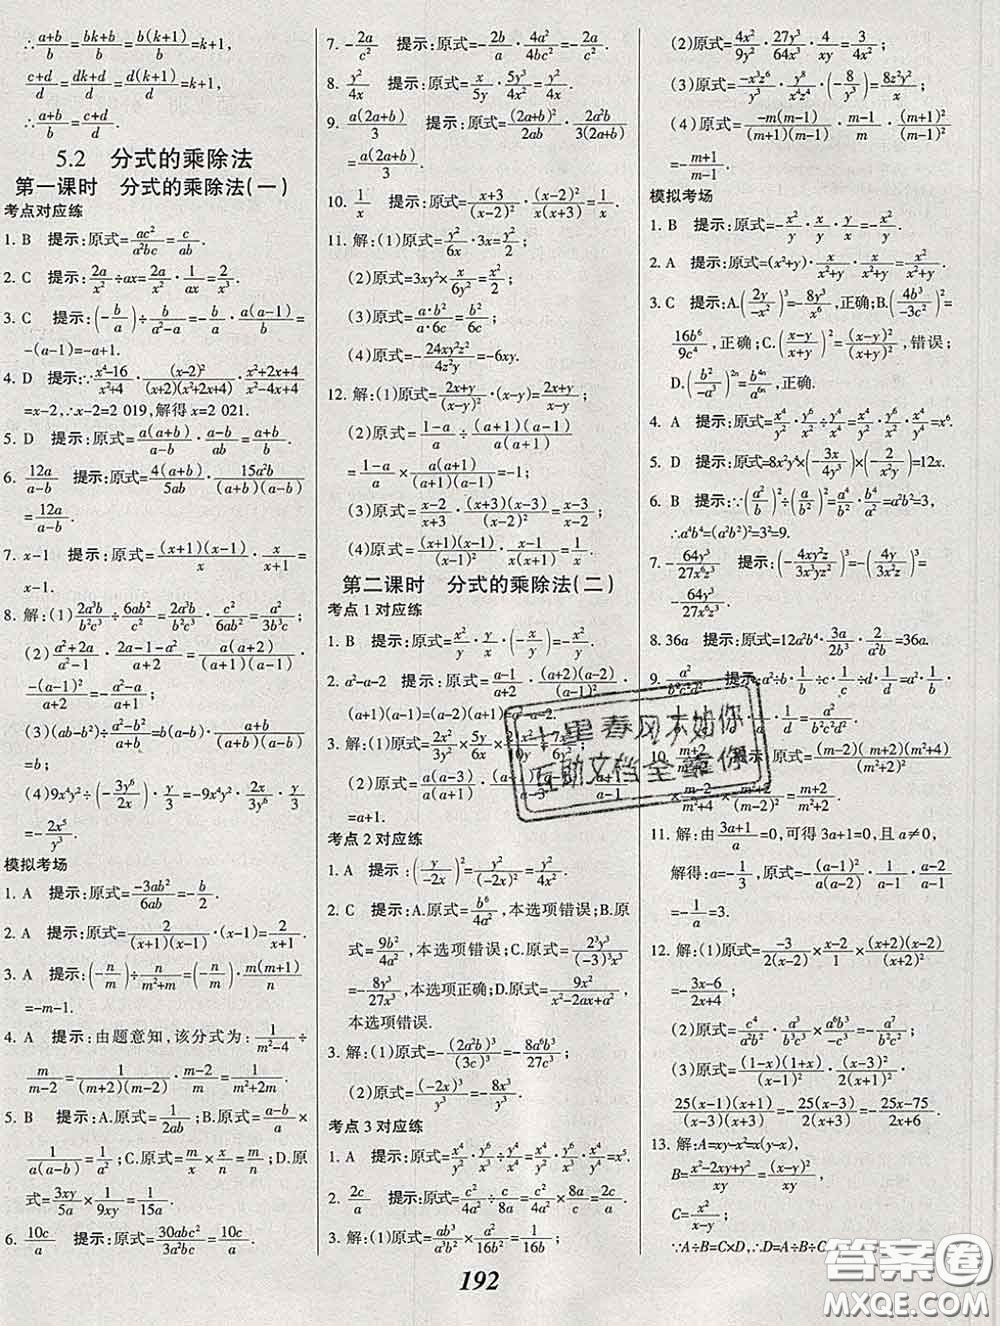 ∴(a+b)/b=(bk+b)/b=b(k+1)/b=k+1,
(c+d)/d=(dk+d)/d=d(k+1)/d=k+1,
∴(a+b)/b=(c+d)/d.
5.2 分式的乘除法
第一课时 分式的乘除法(一)
考点对应练
1. B 提示:原式=ac²/a²bc=c/ab.
2. C 提示:2a/x²÷ax=2a/x²·1/ax=2/x³.
3. C 提示:(-b/a)÷b/(a²-a)=-b/a·a(a-1)/b=
-(a-1)=-a+1.
4. D 提示:∵(x⁴-16)/(x²+4)·(x-2)²/((x+2)(x²+2x+4))·(x²+2x+4)/(x²-4x+4)
=x-2,∴x-2=2 019,解得x=2 021.
5. D 提示:原式=a(a+b)/(a-b)·(a-b)/ab=(a+b)/b.
6. 12a/(a-b) 提示:原式=4(a+b)/5ab·15a²b/((a+b)(a-b))
=12a/(a-b).
7. x-1 提示:原式=(x+1)(x-1)/x·x/(x+1)
=x-1.
8. 解:(1)2a³b/b²c³÷6ab²/c²=2a³b/b²c³·c²/6ab²=a²/3b³c;
(2)(a²+2a)/(a²-1)·(2a-1-a²)/(a+2)=a(a+2)/((a+1)(a-1))·
-(a-1)²/(a+2)=(-a²-a)/(a+1);
(3)(ab-b²)÷(a²-b²)/(a+b)=b(a-b)·(a+b)/((a+b)(a-b))
=b;
(4)9x⁴y²÷(-3y⁶/2x)·y/3=-9x⁴y²·2x/3y⁶·y/3
=-2x⁵/y³.
模拟考场
1. A 提示:原式=-3ab²/6ab=-b/2.
2. A 提示:原式=2/((x+1)(x-1))·(x-1)=2/(x+1).
3. A 提示:(-n/m)÷n/(m²+m)=(-n/m)·m(m+1)/n
=-m-1.
4. A 提示:由题意知,该分式为:1/(m²-4)÷
m/(m-2)=1/((m+2)(m-2))·(m-2)/m=1/(m²+2m).
5. B 提示:A.原式=1/2ab;B.原式=(a-b)/a×
1/(a(a-b))=1/a²;C.原式=m/x·x/n=m/n;D.原
式=3xy/5a×1/9x=y/15a.
6. 10c/a 提示:原式=30abc²/3a²bc=10c/a.
7. -2a/c² 提示:原式=-2b/a·4a²/4bc²=-2a/c².
8. y²/4x 提示:原式=x/5y·5y³/4x²=y²/4x.
9. a(2a+b)/3 提示:原式=(2a+b)²/2ab·2a²b/3(2a+b)=
a(2a+b)/3.
10. 1/x 提示:原式=(x+3)/(x-2)²·(x-2)²/(x(x+3))=1/x.
11. 解:(1)原式=y²/6x·3x=y²/2;
(2)原式=3xy²·x/6y²=x²/2;
(3)原式=b·b²/a·6c·a/b=b²/6c;
(4)原式=-24xy²z²/4z²y=-6xy.
12. 解:(1)原式=(2x+y)/(x-y)²·(x-y)=(2x+y)/(x-y);
(2)原式=(1-a)/a÷(a+1)(a-1)/(a(a+1))
=(1-a)/a×a(a+1)/((a+1)(a-1))=-1;
(3)原式=(x-2)/(x+3)·(x+3)(x-3)/(x-2)²=(x-3)/(x-2);
(4)原式=(x+1)(x-1)/(x-1)²·(x-1)/(x(x+1))=1/x.
第二课时 分式的乘除法(二)
考点1对应练
1. B 提示:原式=x²/y·y/x·(-x/y)=-x²/y.
2. a²-a-2 提示:原式=(a-1)/(a+2)·(a+2)(a-2)/(a-1)²·
(a+1)(a-1)=(a-2)(a+1)=a²-a-2.
3. 解:(1)原式=2x²/3y²×5y/6x×
(2)原式=(a-1)/(a(a+1))·
=a+1.
考点2对应练
1. A 提示:(y/-2x)²=y²/(-2x)²=y²/4x².
2. C 提示:A.原式=b⁶/4a²,本选项错误;B.原
式=9b²/4a²,本选项错误;C.原式=2³y³/(-3)³x³=
-8y³/27x³,本选项正确;D.原式=9x²/(x²-2ax+a²),
本选项错误.
3. 解:(1)原式=-(2a²b)³/(3c)³=-8a⁶b³/27c³;
(2)原式=(-2x)³/y³=-8x³/y³.
考点3对应练
1. A 提示:原式=x⁴/y²·y⁶/x³÷y⁴/x⁴=y⁴x·x⁴/y⁴=x⁵.
2. 2c/a 提示:原式=c²/4a²÷c/8a=c²/4a²×8a/c=2c/a.
3. 解:(1)原式=ab³·a²/16b²=a³b/16;
(2)原式=4x²/9y²·27y³/64x³·4/xy=3/4x²;
(3)原式=-x³z⁶/y³·y⁸/x⁴z⁴·(-8/y³)=8z²y²/x;
(4)原式=-m(m-1)/((m+1)(m-1))·(m-1)/m·(m+1)²/(m-1)²
=-(m+1)/(m-1).
模拟考场
1. B 提示:原式=-x²/y·x/y·y/x=-x²/y.
2. A 提示:原式=(x²+y)·x/(x²+y)·x/(x²+y)=x²/(x²+y).
3. C 提示:A.(2y/-x²)³=-8y³/x⁶,正确;B.(4b³/-3c²)²=
16b⁶/9c⁴,正确;C.((x-y)/(x+y))²=(x-y)²/(x+y)²,错误;
D.(b²/-a³)²ⁿ=b⁴ⁿ/a⁶ⁿ,正确.
4. A 提示:原式=x⁴/y²·y⁶/x³÷y⁴/x⁵
5. D 提示:原式=8x²y⁴(-3x/4y³)(-2/x²y)=12x.
6. B 提示:∵(a²/b)²÷(a/b²)²=a⁴/b²·b⁴/a²=a²b²=3,
∴a⁴b⁴=(a²b²)²=3²=9.
7. -64y³/27x⁶z³ 提示:(-4xy²z/3x³yz²)³=(-4y/3x²z)³=
-64y³/27x⁶z³.
8. 36a 提示:原式=12a²b⁴·3a/2b³·2/a²b=36a.
10. 提示:原式=(m-2)(m+2)(m²+4)/(m²+2)²
×(m-2)/(m²+4)×(m+2)/(m-2)²=(m+2)²/(m²+2)².
11. 解:由(3a+1)/a=0,可得3a+1=0,且a≠0,
解得:a=-1/3,原式=(a-1)²/(a-2)·1/(a-1)·(a-2)/(a(a-1))
-1/a=3.
12. 解:(1)原式=-3/2(x-2)×(x-2)/1×(x+2)(x-2)/(x+2)²=
-(3x-6)/(2x+4);
(2)原式=c⁴/a²b²·a³/b³c³×a⁶b³/c³
(3)原式=(1-x)(1+x)/(x-1)²×
25(x-1)(x+1)/(x+2)²=25(x-3)/2(x+2)=(25x-75)/(2x+4).
13. 解:A=xy-x²=x(y-x),
B=(x²-2xy+y²)/xy=(x-y)²/xy,
C=x²/(x-y);
∵A÷B=C×D,∴D=A÷B÷C
192
十里春风不如你
互助文档全靠你
答案圈
MXQE.COM